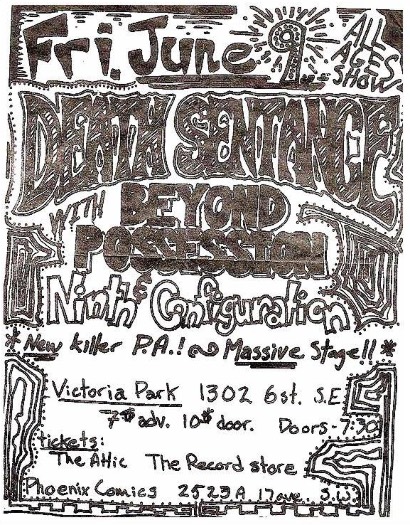 Fri. June 9
ALL AGES SHOW
DEATH SENTENCE
WITH BEYOND POSSESSION
& Ninth Configuration
* New killer P.A.! ~ Massive Stage!! *
Victoria Park 1302 6 st. S.E.
7⁰⁰ adv. 10⁰⁰ door. Doors - 7:30
tickets:
The Attic The Record store
Phoenix Comics 2523A 17 ave. S.W.